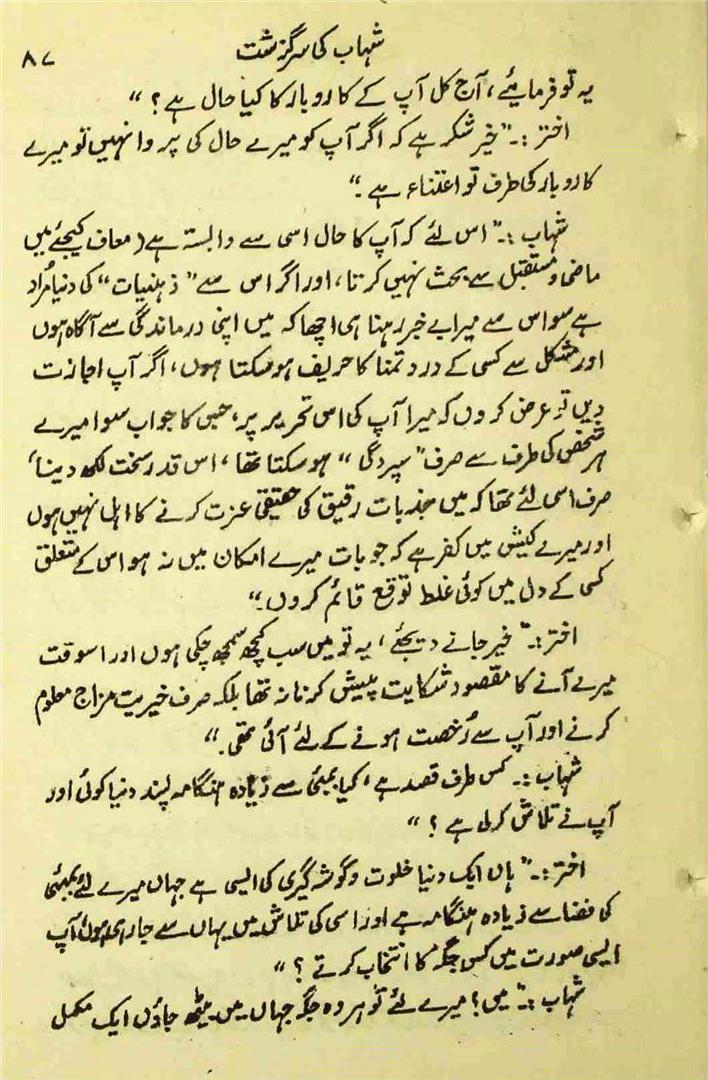 شہاب کی سرگزشت
۸۷
یہ تو فرمایئے، آج کل آپ کے کاروبار کا کیا حال ہے؟"
اختر:۔ "خیر شکر ہے کہ اگر آپ کو میرے حال کی پروا نہیں تو میرے
کاروبار کی طرف تو اعتناء ہے۔"
شہاب:۔ "اس لئے کہ آپ کا حال اسی سے وابستہ ہے (معاف کیجئے میں
ماضی و مستقبل سے بحث نہیں کرتا، اور اگر اس سے "ذہنیات" کی دنیا مُراد
ہے سو اس سے میرا بے خبر رہنا ہی اچھا کہ میں اپنی درماندگی سے آگاہ ہوں
اور مشکل سے کسی کے دردِ تمنا کا حریف ہو سکتا ہوں، اگر آپ اجازت
دیں تو عرض کروں کہ میرا آپ کی اس تحریر پر، جس کا جواب سوا میرے
ہر شخص کی طرف سے صرف "سپردگی" ہو سکتا تھا، اس قدر سخت لکھ دینا،
صرف اسی لئے تھا کہ میں جذبات رقیق کی حقیقی عزت کرنے کا اہل نہیں ہوں
اور میرے کیش میں کفر ہے کہ جو بات میرے امکان میں نہ ہو اس کے متعلق
کسی کے دل میں کوئی غلط توقع قائم کروں۔"
اختر:۔ "خیر جانے دیجئے، یہ تو میں سب کچھ سمجھ چکی ہوں اور اسوقت
میرے آنے کا مقصود شکایت پیش کرنا نہ تھا بلکہ صرف خیریت مزاج معلوم
کرنے اور آپ سے رُخصت ہونے کے لئے آئی تھی۔"
شہاب:۔ کس طرف قصد ہے، کیا بمبئی سے زیادہ ہنگامہ پسند دنیا کوئی اور
آپ نے تلاش کرلی ہے؟"
اختر:۔ "ہاں ایک دنیا خلوت و گوشہ گیری کی ایسی ہے جہاں میرے لئے بمبئی
کی فضا سے زیادہ ہنگامہ ہے اور اسی کی تلاش میں یہاں سے جارہی ہوں آپ
ایسی صورت میں کس جگہ کا انتخاب کرتے؟"
شہاب:۔ "میں؟ میرے لئے تو ہر وہ جگہ جہاں میں بیٹھ جاؤں ایک مکمل